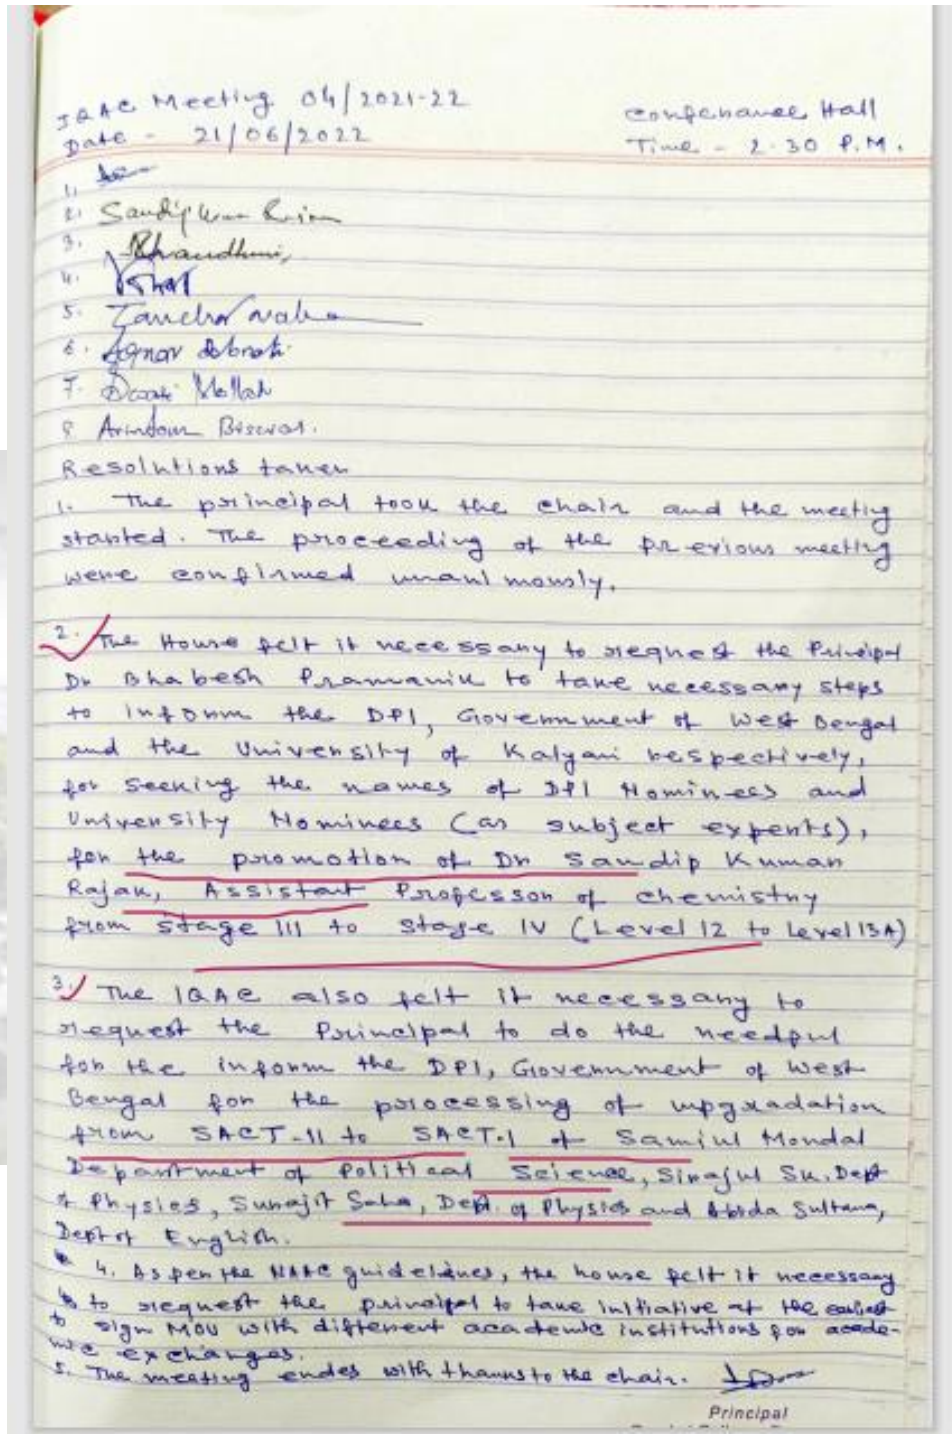 IQAC Meeting 04/2021-22
Conferance Hall
Date - 21/06/2022
Time - 2.30 P.M.
1.
2. Sandip Kumar Rajan
3. Rhaudhuri,
4.
5.
6.
7. Mollah
8 Arindam Biswas.
Resolutions taken
1. The principal took the chair and the meeting
started. The proceeding of the previous meeting
were confirmed unanimously.
2. The House felt it necessary to request the Principal
Dr Bhabesh Pramanik to take necessary steps
to inform the DPI, Government of West Bengal
and the University of Kalyani respectively,
for seeking the names of DPI Nominees and
University Nominees (as subject experts),
for the promotion of Dr Sandip Kumar
Rajak, Assistant Professor of chemistry
from stage III to stage IV (Level 12 to Level 13A)
3. The IQAC also felt it necessary to
request the Principal to do the needful
for the inform the DPI, Government of West
Bengal for the processing of upgradation
from SACT-II to SACT-I of Samiul Mondal
Department of Political Science, Sirajul Sk. Dept
of Physics, Surajit Saha, Dept. of Physics and Abida Sultana,
Dept of English.
4. As per the NAAC guidelines, the house felt it necessary
to request the principal to take initiative at the earliest
to sign MOU with different academic institutions for acade-
mic exchanges.
5. The meeting endes with thanks to the chair.
Principal